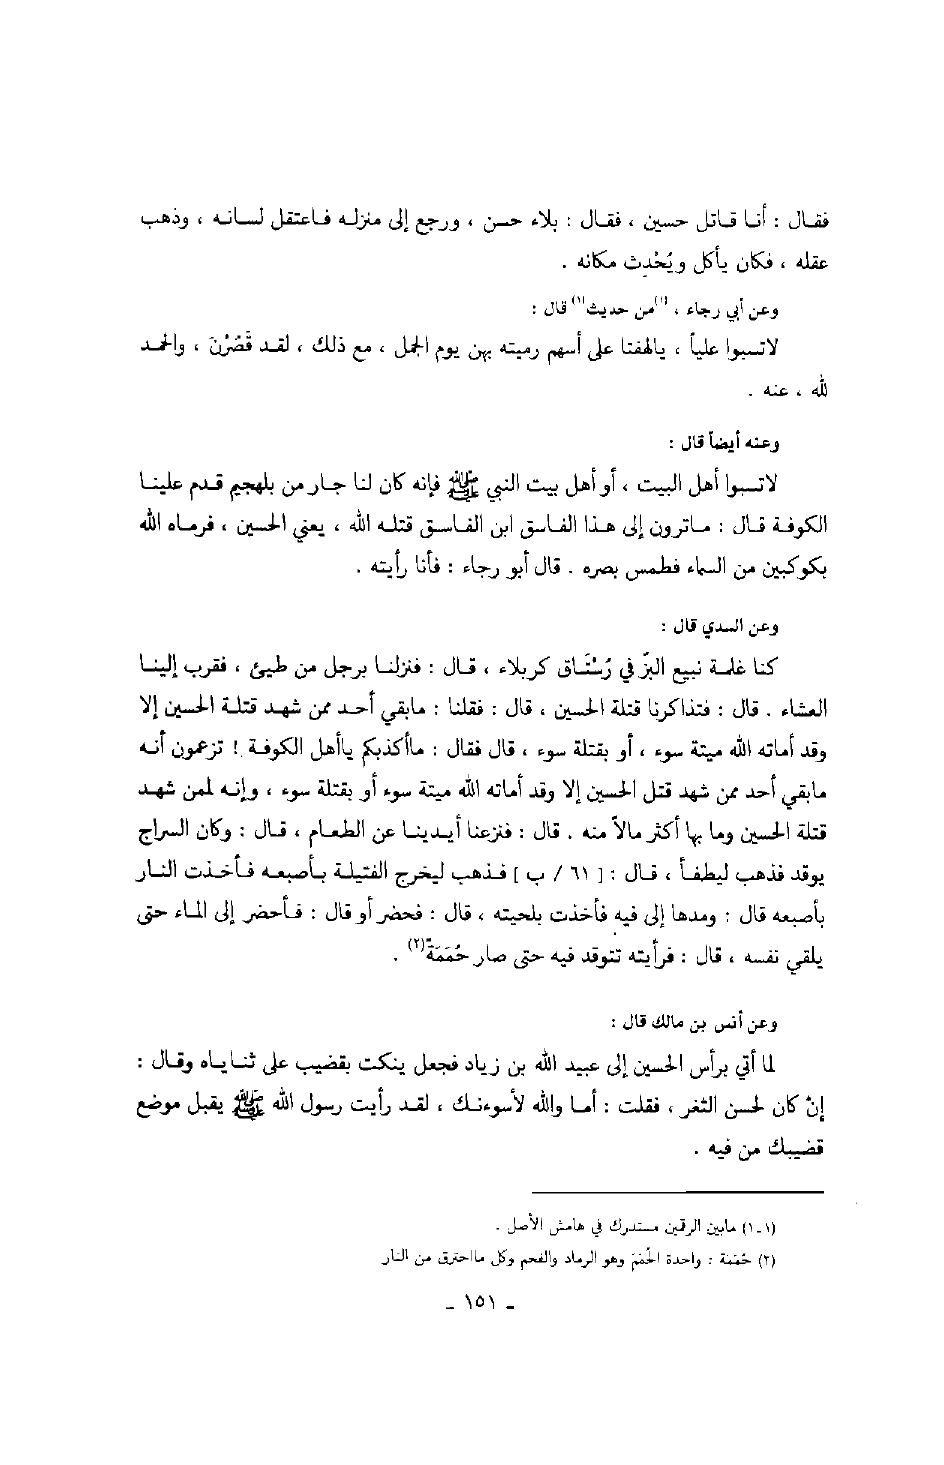 فقال : أنا قاتل حسين ، فقال : بلاء حسن ، ورجع إلى منزله فاعتقل لسانه ، وذهب
عقله ، فكان يأكل ويُحْدِث مكانه .
وعن أبي رجاء ، (١)من حديث(١) قال :
لاتسبوا علياً ، يالهفتا على أسهم رميته بهن يوم الجمل ، مع ذلك ، لقد قَصُرْنَ ، والحمد
لله ، عنه .
وعنه أيضاً قال :
لاتسبوا أهل البيت ، أو أهل بيت النبي ﷺ فإنه كان لنا جار من بلهجيم قدم علينا
الكوفة قال : ماترون إلى هذا الفاسق ابن الفاسق قتله الله ، يعني الحسين ، فرماه الله
بكوكبين من السماء فطمس بصره . قال أبو رجاء : فأنا رأيته .
وعن السدي قال :
كنا غلمة نبيع البزّ في رُسْتَاق كربلاء ، قال : فنزلنا برجل من طيئ ، فقرب إلينا
العشاء . قال : فتذاكرنا قتلة الحسين ، قال : فقلنا : مابقي أحد ممن شهد قتلة الحسين إلا
وقد أماته الله ميتة سوء ، أو بقتلة سوء ، قال فقال : ماأكذبكم ياأهل الكوفة ! تزعمون أنه
مابقي أحد ممن شهد قتل الحسين إلا وقد أماته الله ميتة سوء أو بقتلة سوء ، وإنه لممن شهد
قتلة الحسين وما بها أكثر مالاً منه . قال : فنزعنا أيدينا عن الطعام ، قال : وكان السراج
يوقد فذهب ليطفأ ، قال : [ ٦١ / ب ] فذهب ليخرج الفتيلة بأصبعه فأخذت النار
بأصبعه قال : ومدها إلى فيه فأخذت بلحيته ، قال : فحضر أو قال : فأحضر إلى الماء حتى
يلقي نفسه ، قال : فرأيته تتوقد فيه حتى صار حُمَمَةً(٢) .
وعن أنس بن مالك قال :
لما أتي برأس الحسين إلى عبيد الله بن زياد فجعل ينكت بقضيب على ثناياه وقال :
إنْ كان لحسن الثغر ، فقلت : أما والله لأسوءنك ، لقد رأيت رسول الله ﷺ يقبل موضع
قضيبك من فيه .
(١-١) مابين الرقمين مستدرك في هامش الأصل .
(٢) حُمَمَة : واحدة الحُمَمَ وهو الرماد والفحم وكل مااحترق من النار
- ١٥١ -